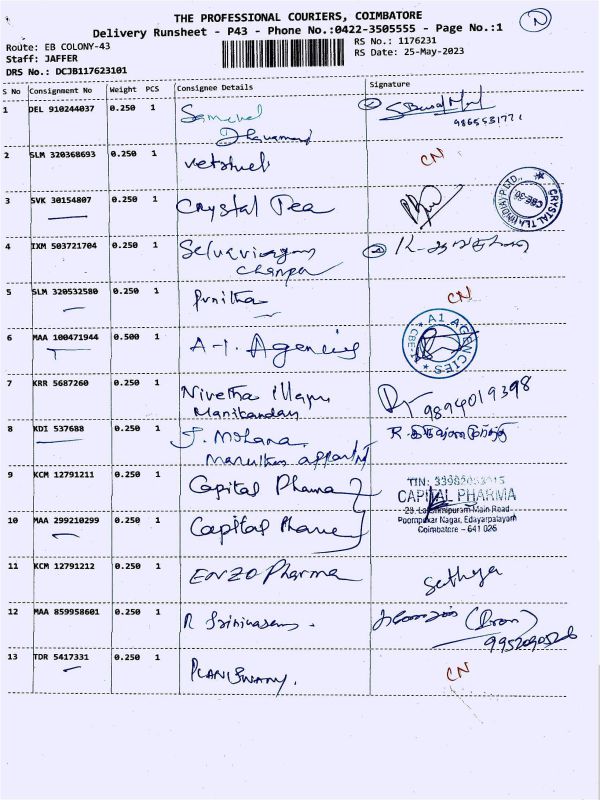 THE PROFESSIONAL COURIERS, COIMBATORE
Delivery Runsheet - P43 - Phone No.:0422-3505555 - Page No.:1
Route: EB COLONY-43
RS No.: 1176231
Staff: JAFFER
RS Date: 25-May-2023
DRS No.: DCJB117623101
S No Consignment No Weight PCS Consignee Details Signature
1 DEL 910244037 0.250 1
9865531771
2 SLM 320368693 0.250 1 CN
3 SVK 30154807 0.250 1 Crystal Tea
CRYSTAL TEA (INDIA) P LTD., CBE-30
4 IXM 503721704 0.250 1
5 SLM 320532580 0.250 1 Punitha CN
6 MAA 100471944 0.500 1 A-1. Agencies
A1 AGENCIES
7 KRR 5687260 0.250 1 Nivetha
Manikandan 9894019398
8 KDI 537688 0.250 1 J. Mohana
9 KCM 12791211 0.250 1 Capital Pharma
CAPITAL PHARMA
Main Road
Poompukar Nagar, Edayarpalayam
Coimbatore - 641 025
10 MAA 299210299 0.250 1 Capital Pharma
11 KCM 12791212 0.250 1 Enzo Pharma Sathya
12 MAA 859958601 0.250 1 R Srinivasan.
13 TDR 5417331 0.250 1 CN